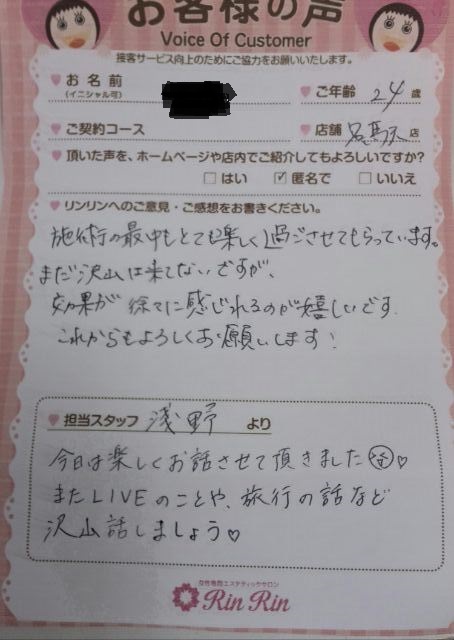 お客様の声
Voice Of Customer
接客サービス向上のためにご協力をお願いいたします。
お名前
(イニシャル可)
ご年齢 24 歳
ご契約コース
店舗 名駅 店
頂いた声を、ホームページや店内でご紹介してもよろしいですか?
はい 匿名で いいえ
リンリンへのご意見・ご感想をお書きください。
施術の最中もとても楽しく過ごさせてもらっています。
まだ沢山は来てないですが、
効果が徐々に感じれるのが嬉しいです。
これからもよろしくお願いします!
担当スタッフ 浅野 より
今日は楽しくお話させて頂きました♡
またLIVEのことや、旅行の話など
沢山話しましょう♡
女性専門エステティックサロン
Rin Rin